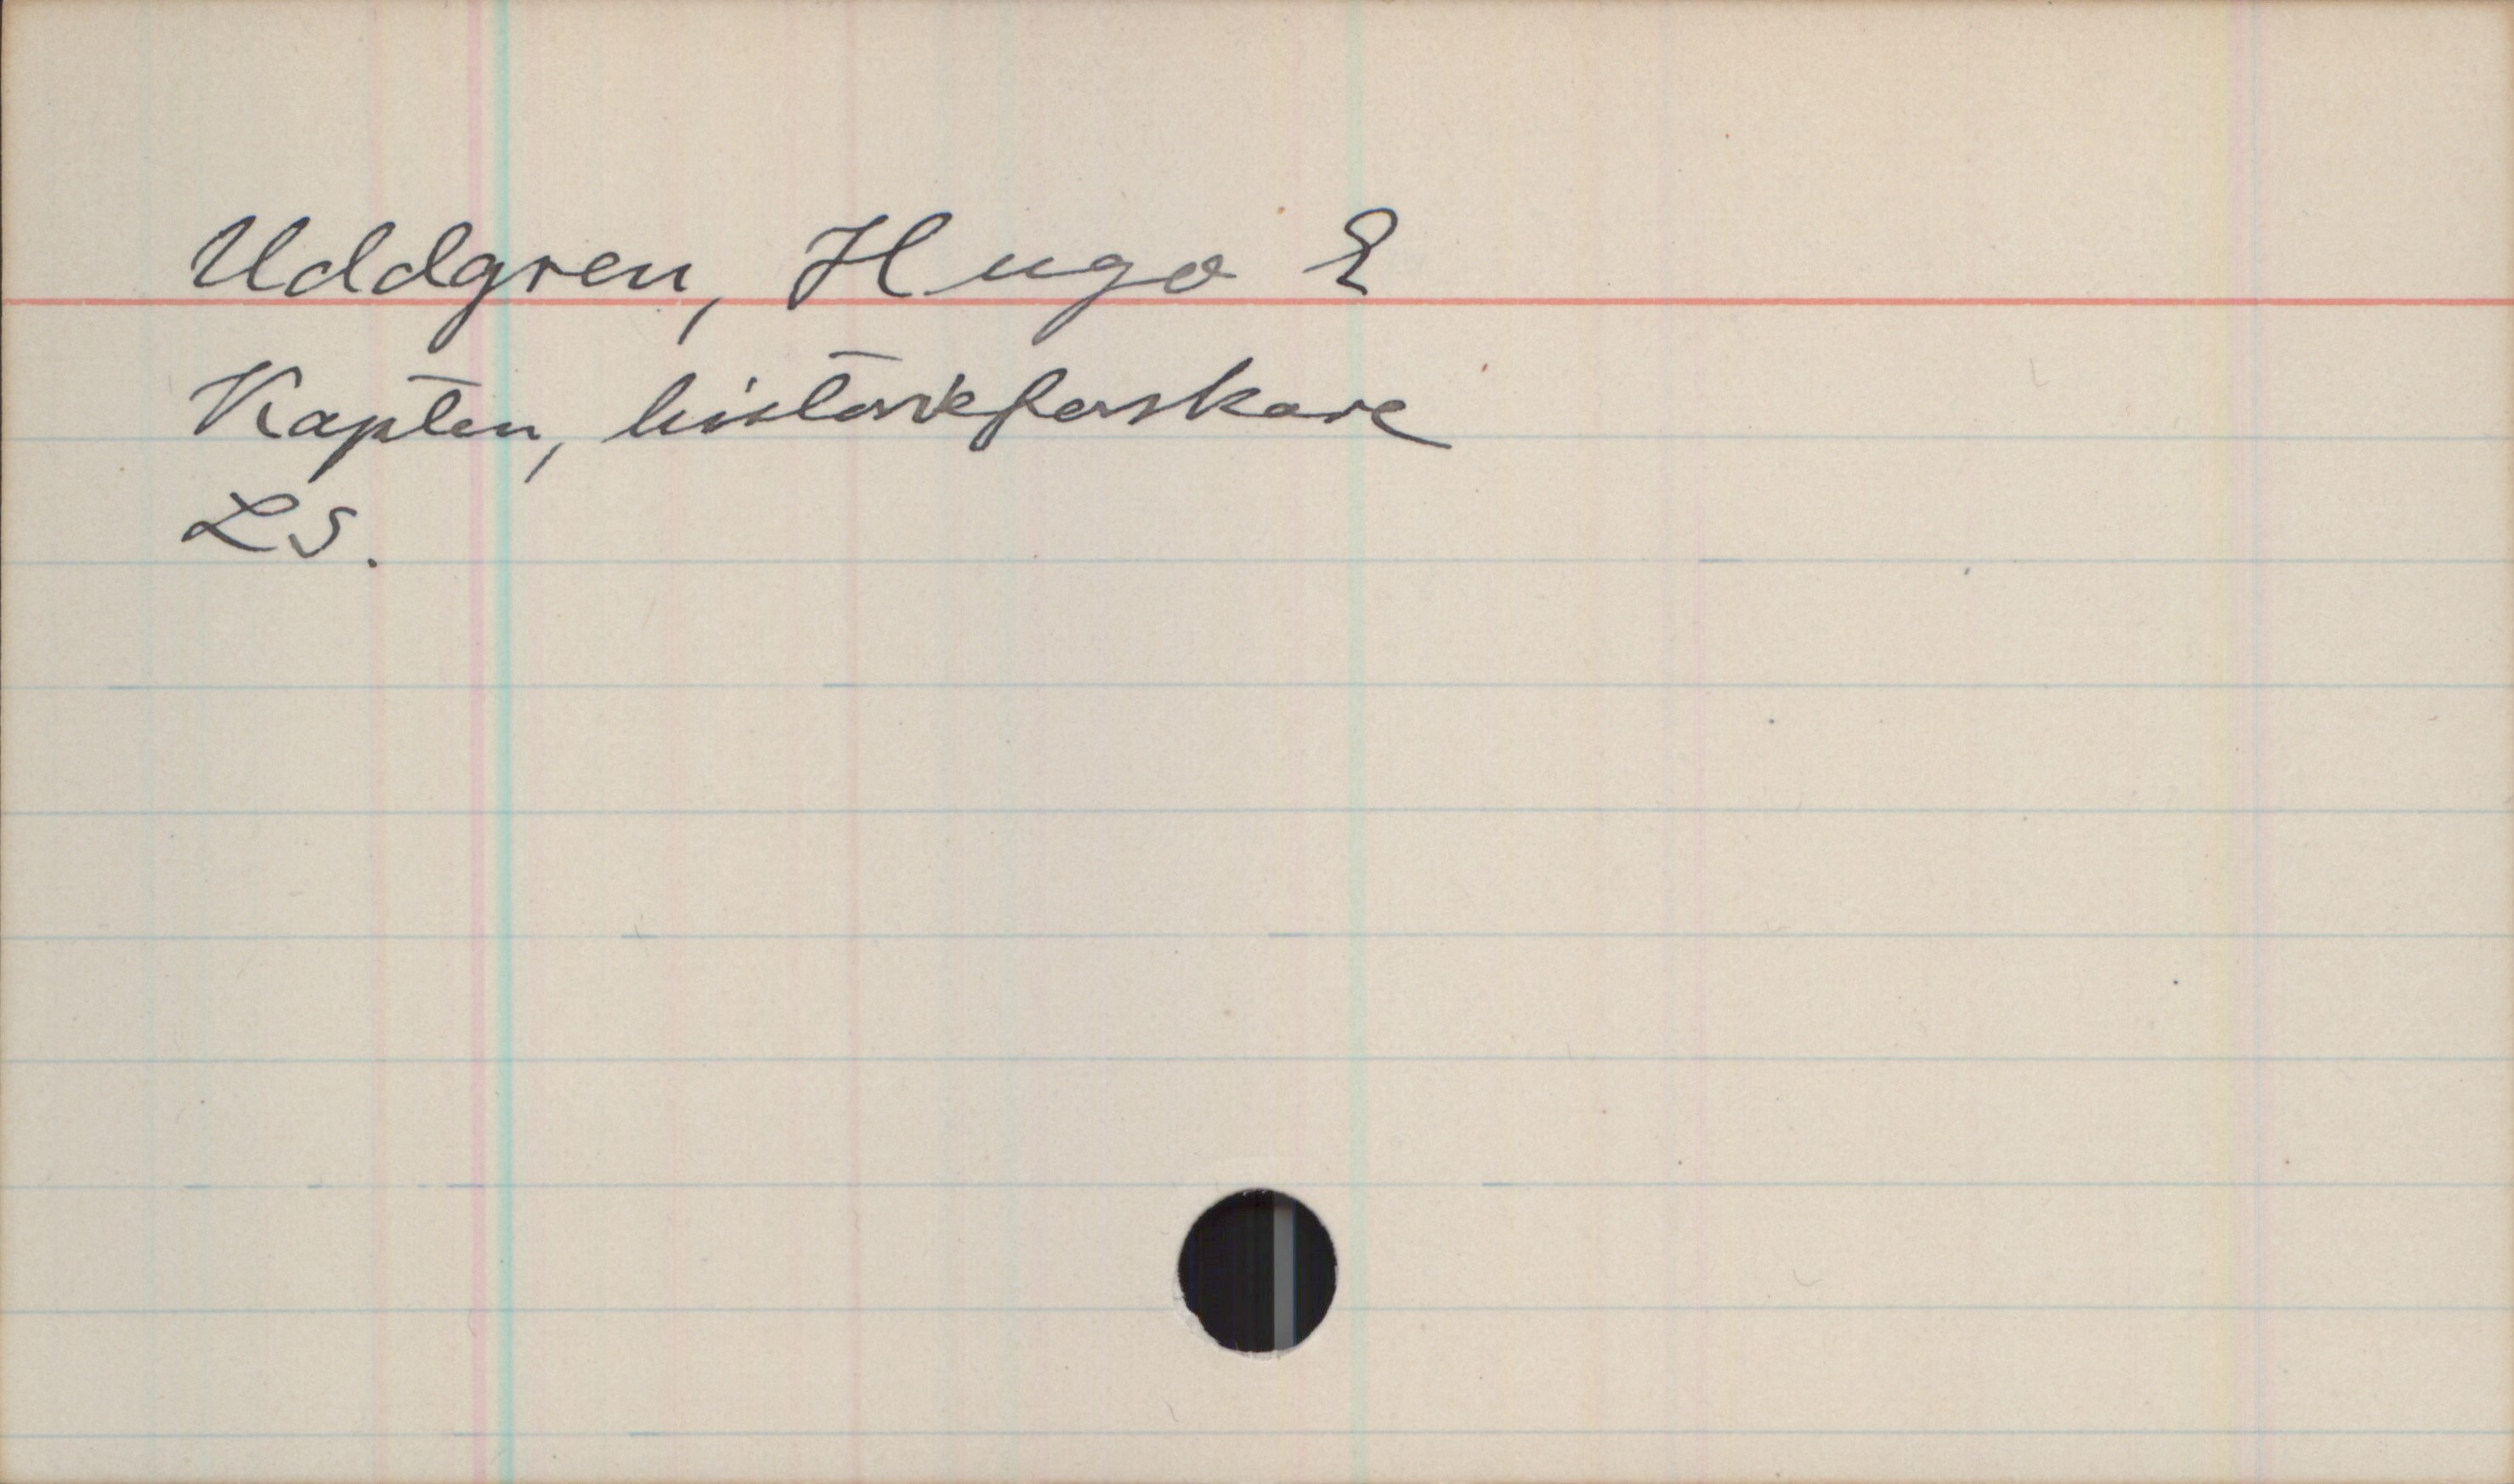 Uddgren, Hugo E
Kapten, historieforskare
LS.